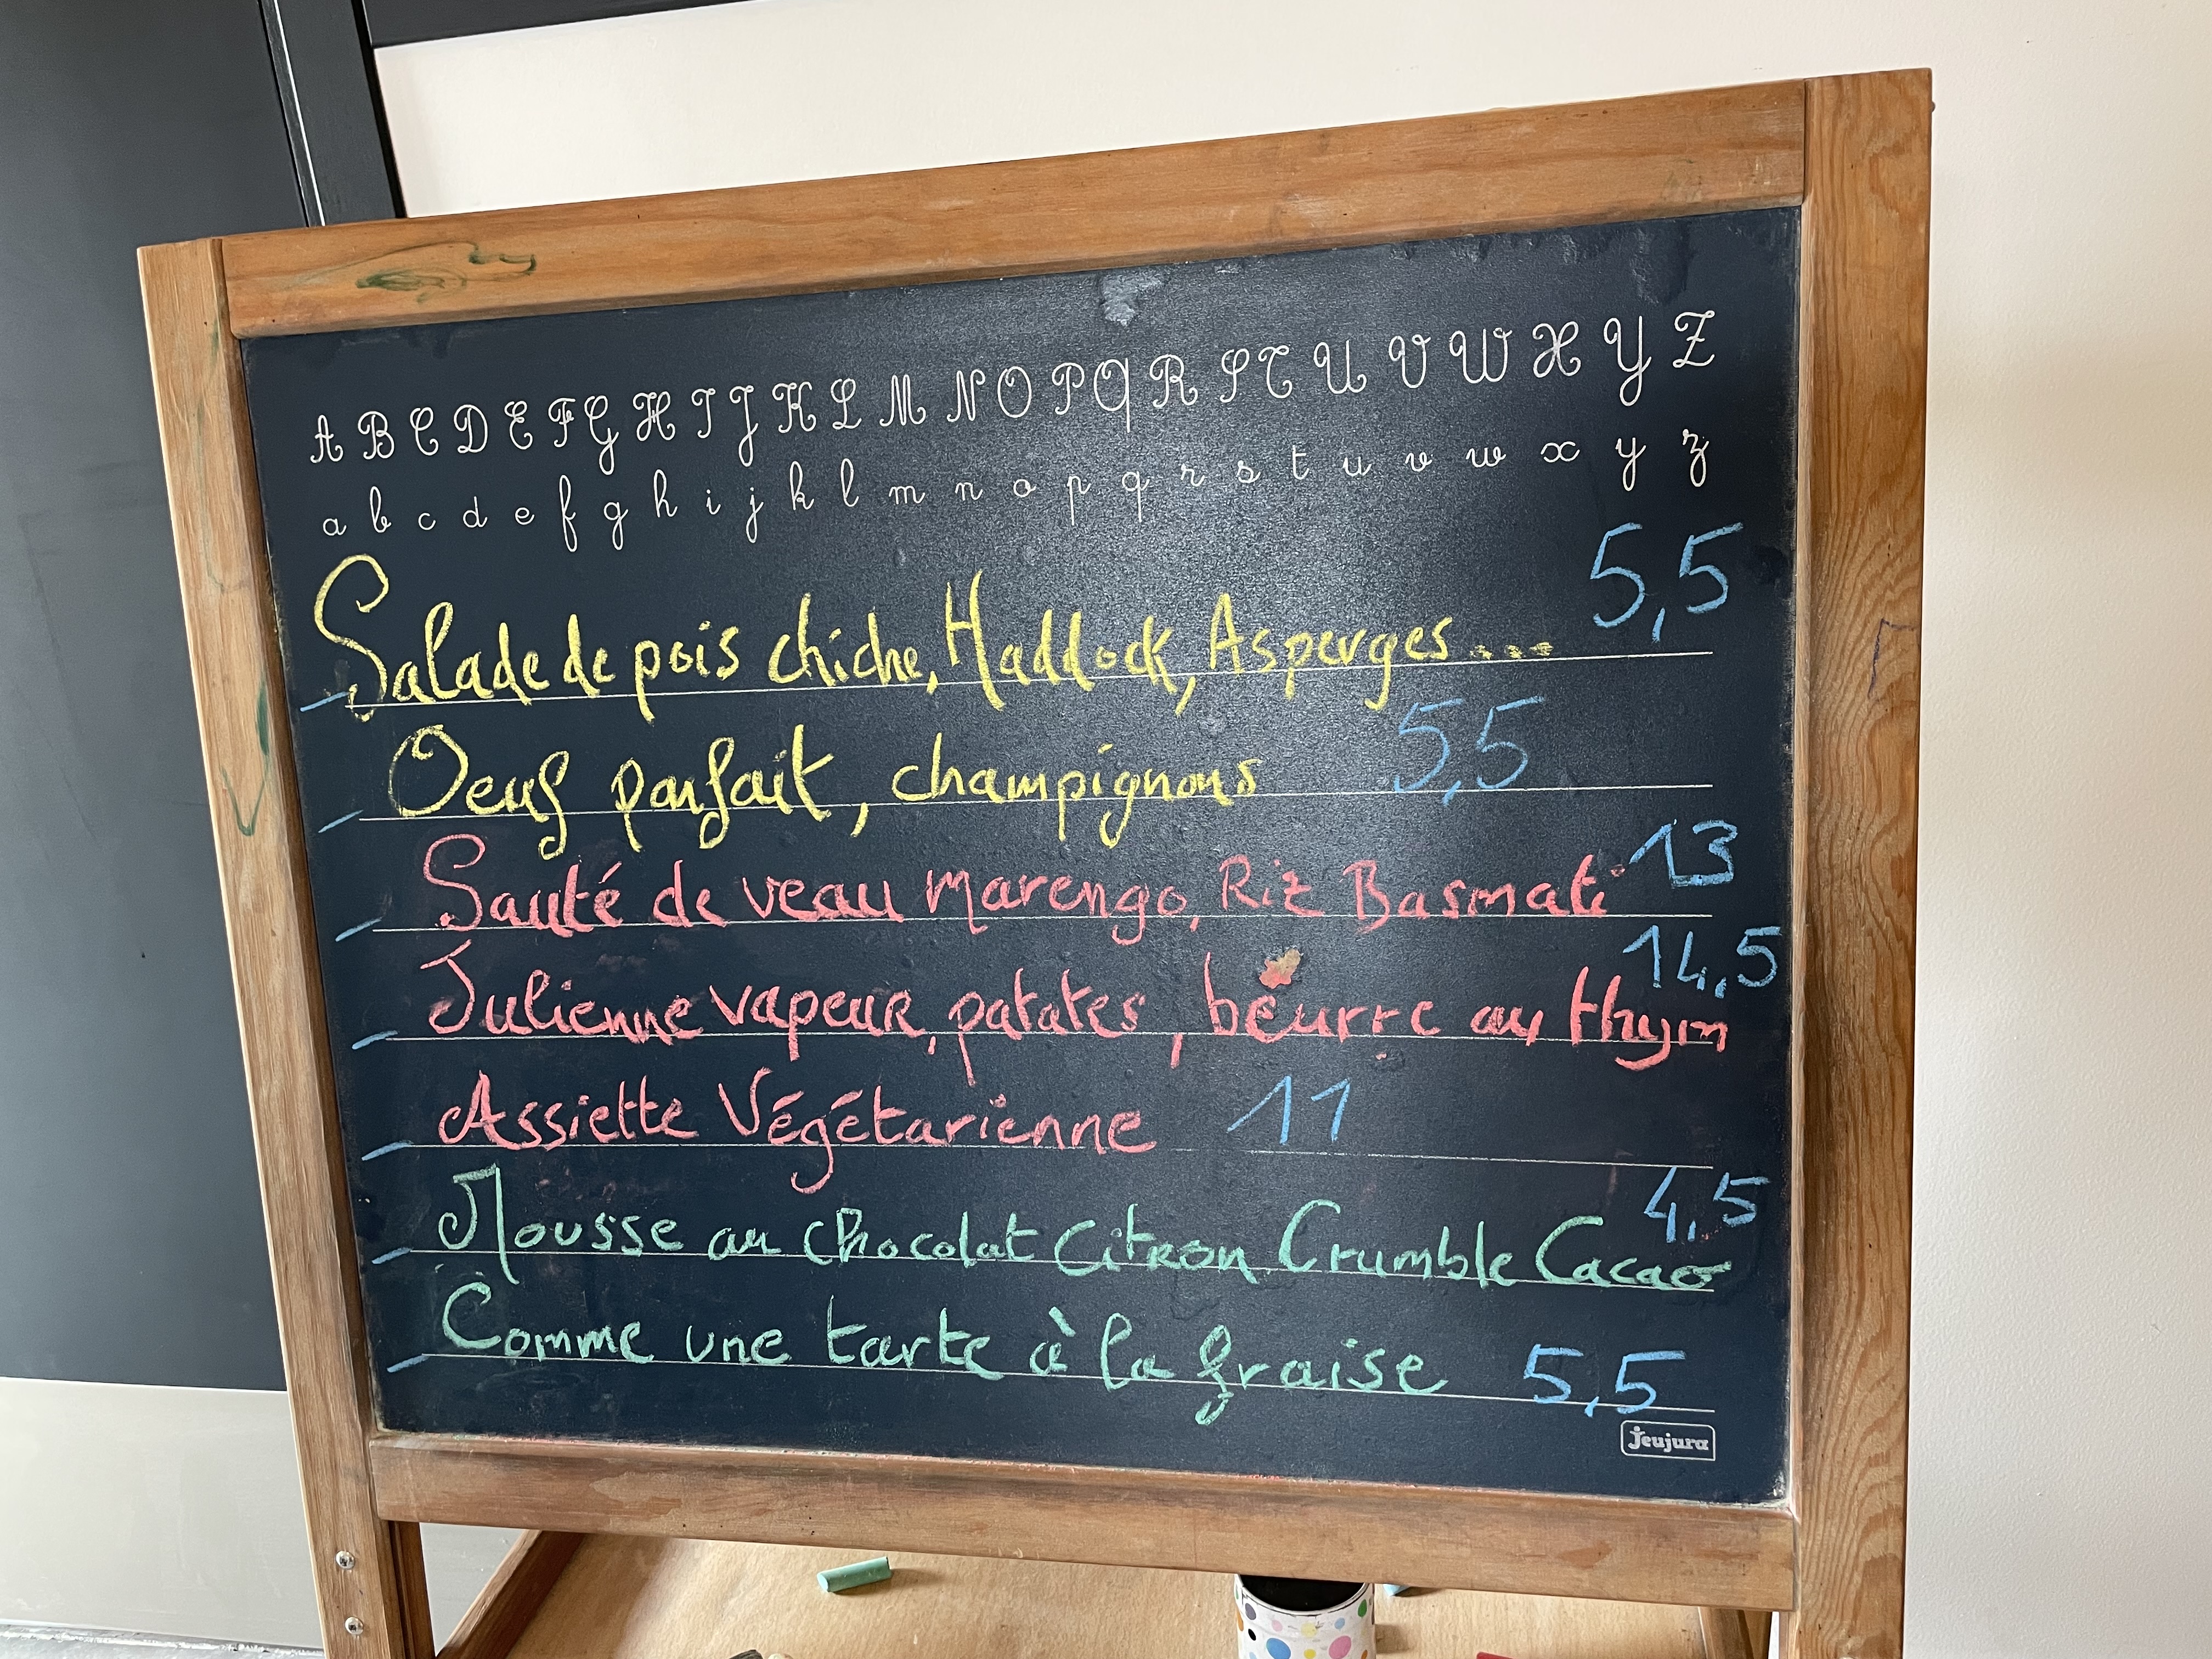 A B C D E F G H I J K L M N O P Q R S T U V W X Y Z
a b c d e f g h i j k l m n o p q r s t u v w x y z
Salade de pois chiche, Haddock, Asperges... 5,5
Oeuf parfait, champignons 5,5
Sauté de veau marengo, Riz Basmati 13
Julienne vapeur, patates, beurre au thym 14,5
Assiette Végétarienne 11
Mousse au chocolat Citron Crumble Cacao 4,5
Comme une tarte à la fraise 5,5
jeujura